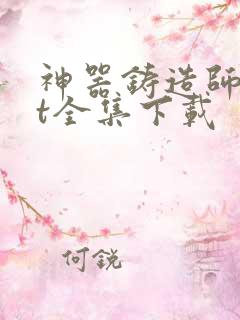 神器鋳造師
t全集下載
何銳